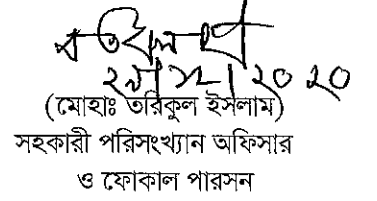 (মোহাঃ তরিকুল ইসলাম)
সহকারী পরিসংখ্যান অফিসার
ও ফোকাল পারসন